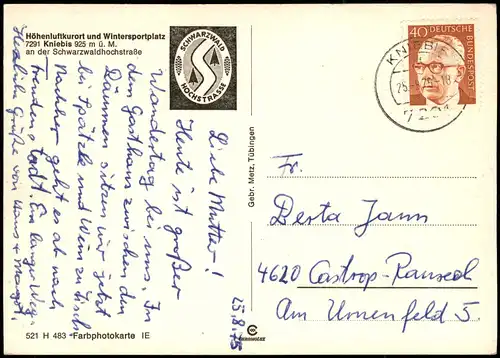 Höhenluftkurort und Wintersportplatz
7291 Kniebis 925 m ü. M.
an der Schwarzwaldhochstraße
SCHWARZWALD
HOCHSTRASSE
25.8.75
Liebe Mutter!
Heute ist großer
Wandertag bei uns. Im
dem Gasthaus zwischen den
Bäumen sitzen wir jetzt
bei Spätzle und Wein zu Tisch
Nachher geht es ab nach
Freudenstadt. Ein langer Weg.
Herzliche Grüße von Hans + Margot
521 H 483 - Farbphotokarte IE
Gebr. Metz, Tübingen
CHROMOLUX
40 DEUTSCHE
BUNDESPOST
KNIEBIS
7291
Fr.
Berta Jann
4620 Castrop-Rauxel
Am Urnenfeld 5.